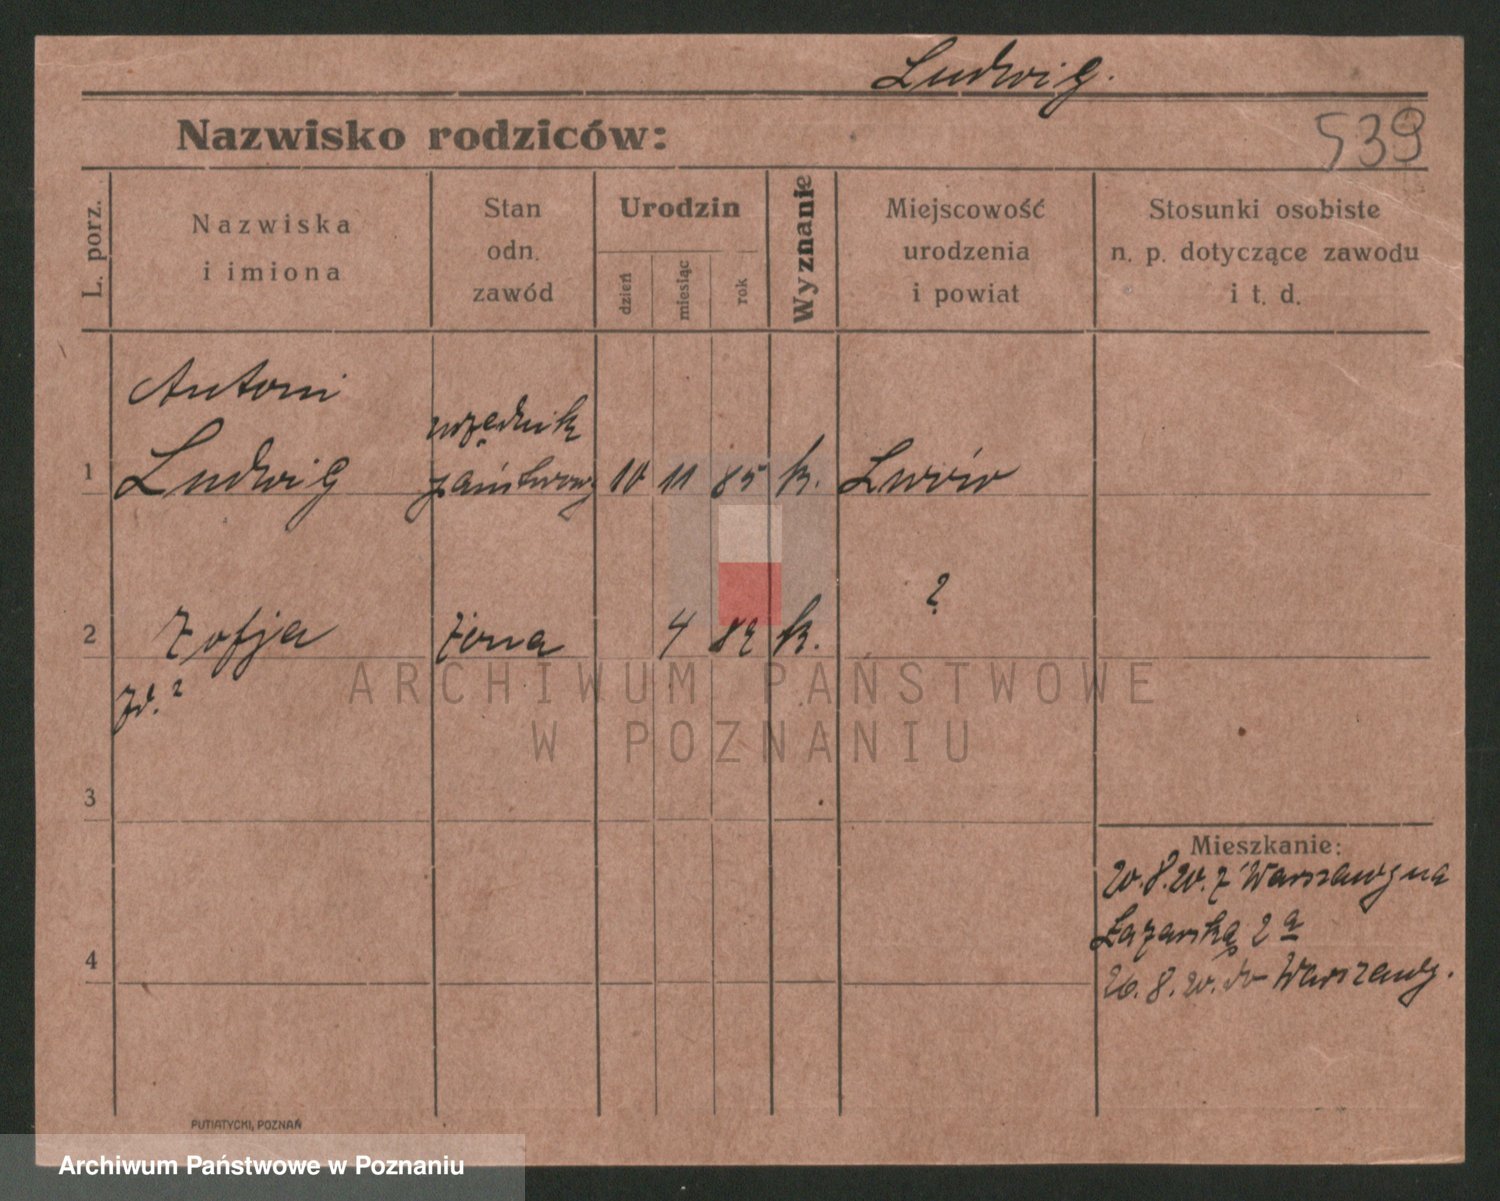 Ludwig.
Nazwisko rodziców:
539
L. porz.
Nazwiska
i imiona
Stan
odn.
zawód
Urodzin
dzień
miesiąc
rok
Wyznanie
Miejscowość
urodzenia
i powiat
Stosunki osobiste
n. p. dotyczące zawodu
i t. d.
Antoni
1 Ludwig urzędnik państwowy 10 11 85 k. Lwów
2 Zofja żona 4 89 k. ?
zd. ?
3
4
Mieszkanie:
20.8.20. z Warszawy na
Łazarską 2 a
26.8.20. do Warszawy.
ARCHIWUM PAŃSTWOWE
W POZNANIU
PUTIATYCKI, POZNAŃ
Archiwum Państwowe w Poznaniu